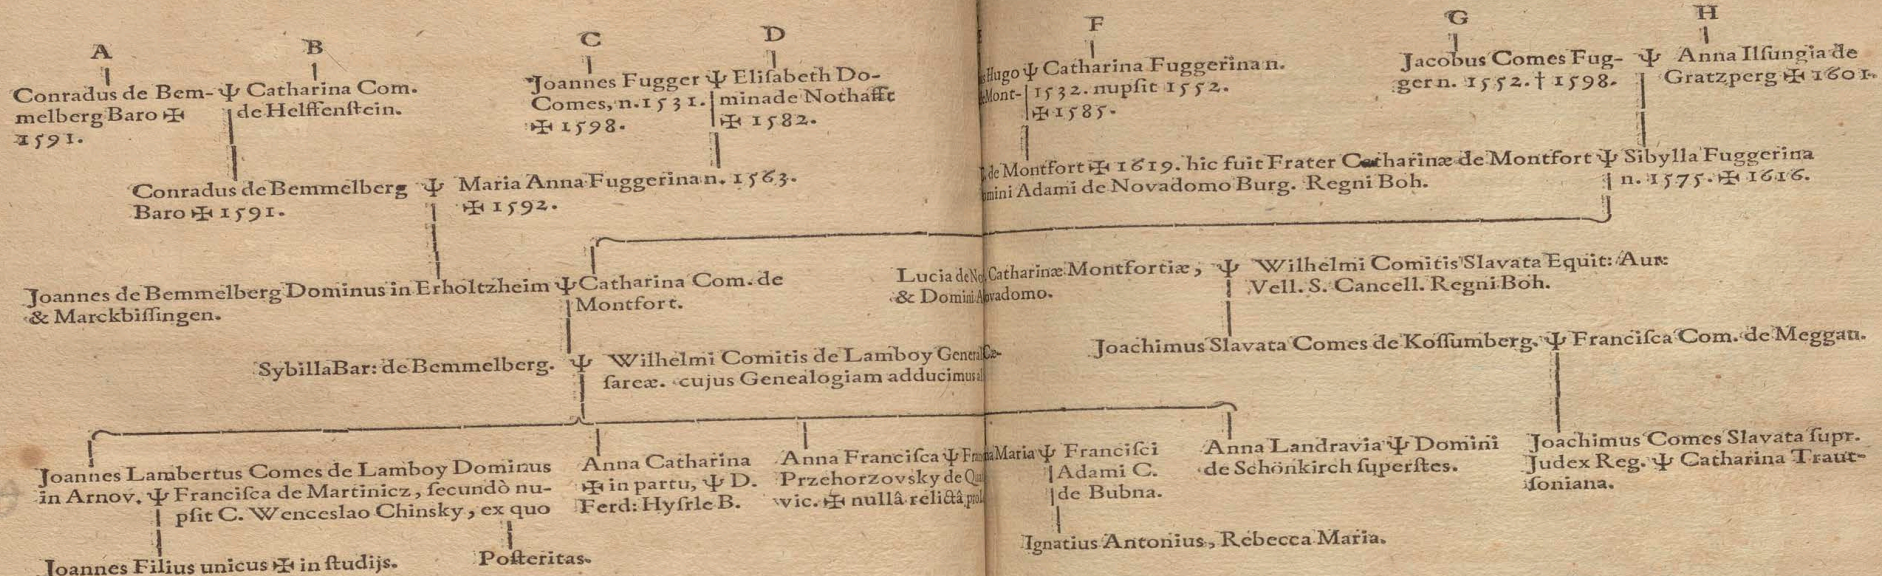 A B C D F G H
Conradus de Bem- Ψ Catharina Com.
melberg Baro ✠ de Helffenſtein.
1591.
Joannes Fugger Ψ Eliſabeth Do-
Comes, n. 1531. minade Nothafft
✠ 1598. ✠ 1582.
Hugo Ψ Catharina Fuggerina n.
Mont- 1532. nupſit 1552.
✠ 1585.
Jacobus Comes Fug- Ψ Anna Ilſungia de
ger n. 1552. † 1598. Gratzperg ✠ 1601.
Conradus de Bemmelberg Ψ Maria Anna Fuggerina n. 1563.
Baro ✠ 1591. ✠ 1592.
de Montfort ✠ 1619. hic fuit Frater Catharinæ de Montfort Ψ Sibylla Fuggerina
mini Adami de Novadomo Burg. Regni Boh. n. 1575. ✠ 1616.
Joannes de Bemmelberg Dominus in Erholtzheim Ψ Catharina Com. de
& Marckbiſſingen. Montfort.
Lucia de Catharinæ Montfortiæ, Ψ Wilhelmi Comitis Slavata Equit: Aur:
& Domini vadomo. Vell. S. Cancell. Regni Boh.
Sybilla Bar: de Bemmelberg. Ψ Wilhelmi Comitis de Lamboy General Cæ-
ſareæ. cujus Genealogiam adducimus
Joachimus Slavata Comes de Koſſumberg. Ψ Franciſca Com. de Meggau.
Joannes Lambertus Comes de Lamboy Dominus
in Arnov. Ψ Franciſca de Martinicz, ſecundò nu-
pſit C. Wenceslao Chinsky, ex quo
Joannes Filius unicus ✠ in ſtudijs. Poſteritas.
Anna Catharina
✠ in partu, Ψ D.
Ferd: Hyſrle B.
Anna Franciſca Ψ
Przehorzovsky de
vic. ✠ nullâ relictâ
Maria Ψ Franciſci
Adami C.
de Bubna.
Ignatius Antonius, Rebecca Maria.
Anna Landravia Ψ Domini
de Schönkirch ſuperſtes.
Joachimus Comes Slavata ſupr.
Judex Reg. Ψ Catharina Traut-
ſoniana.